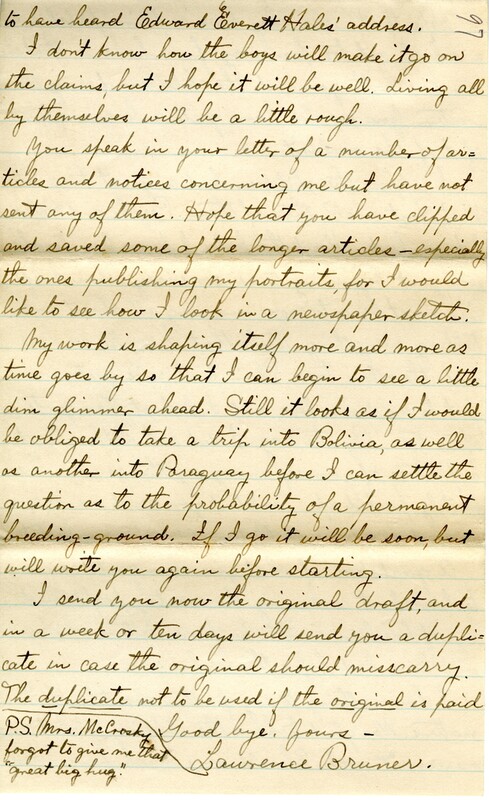 97
to have heard Edward Everett Hales' address.
I don't know how the boys will make it go on
the claims, but I hope it will be well. Living all
by themselves will be a little rough.
You speak in your letter of a number of ar=
ticles and notices concerning me but have not
sent any of them. Hope that you have clipped
and saved some of the longer articles – especially
the ones publishing my portraits, for I would
like to see how I look in a newspaper sketch.
My work is shaping itself more and more as
time goes by so that I can begin to see a little
dim glimmer ahead. Still it looks as if I would
be obliged to take a trip into Bolivia, as well
as another into Paraguay before I can settle the
question as to the probability of a permanent
breeding-ground. If I go it will be soon, but
will write you again before starting.
I send you now the original draft, and
in a week or ten days will send you a dupli-
cate in case the original should misscarry.
The duplicate not to be used if the original is paid
Good bye. Yours –
Lawrence Bruner.
P.S. Mrs. McCrosky
forgot to give me that
"great big hug."